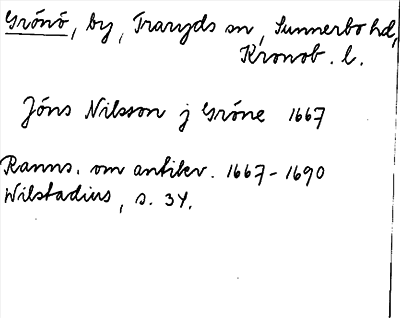 Grönö, by, Traryds sn, Sunnerbo hd,
Kronob. l.
Jöns Nilsson j Gröne 1667
Ranns. om antikv. 1667-1690
Wilstadius, s. 34.